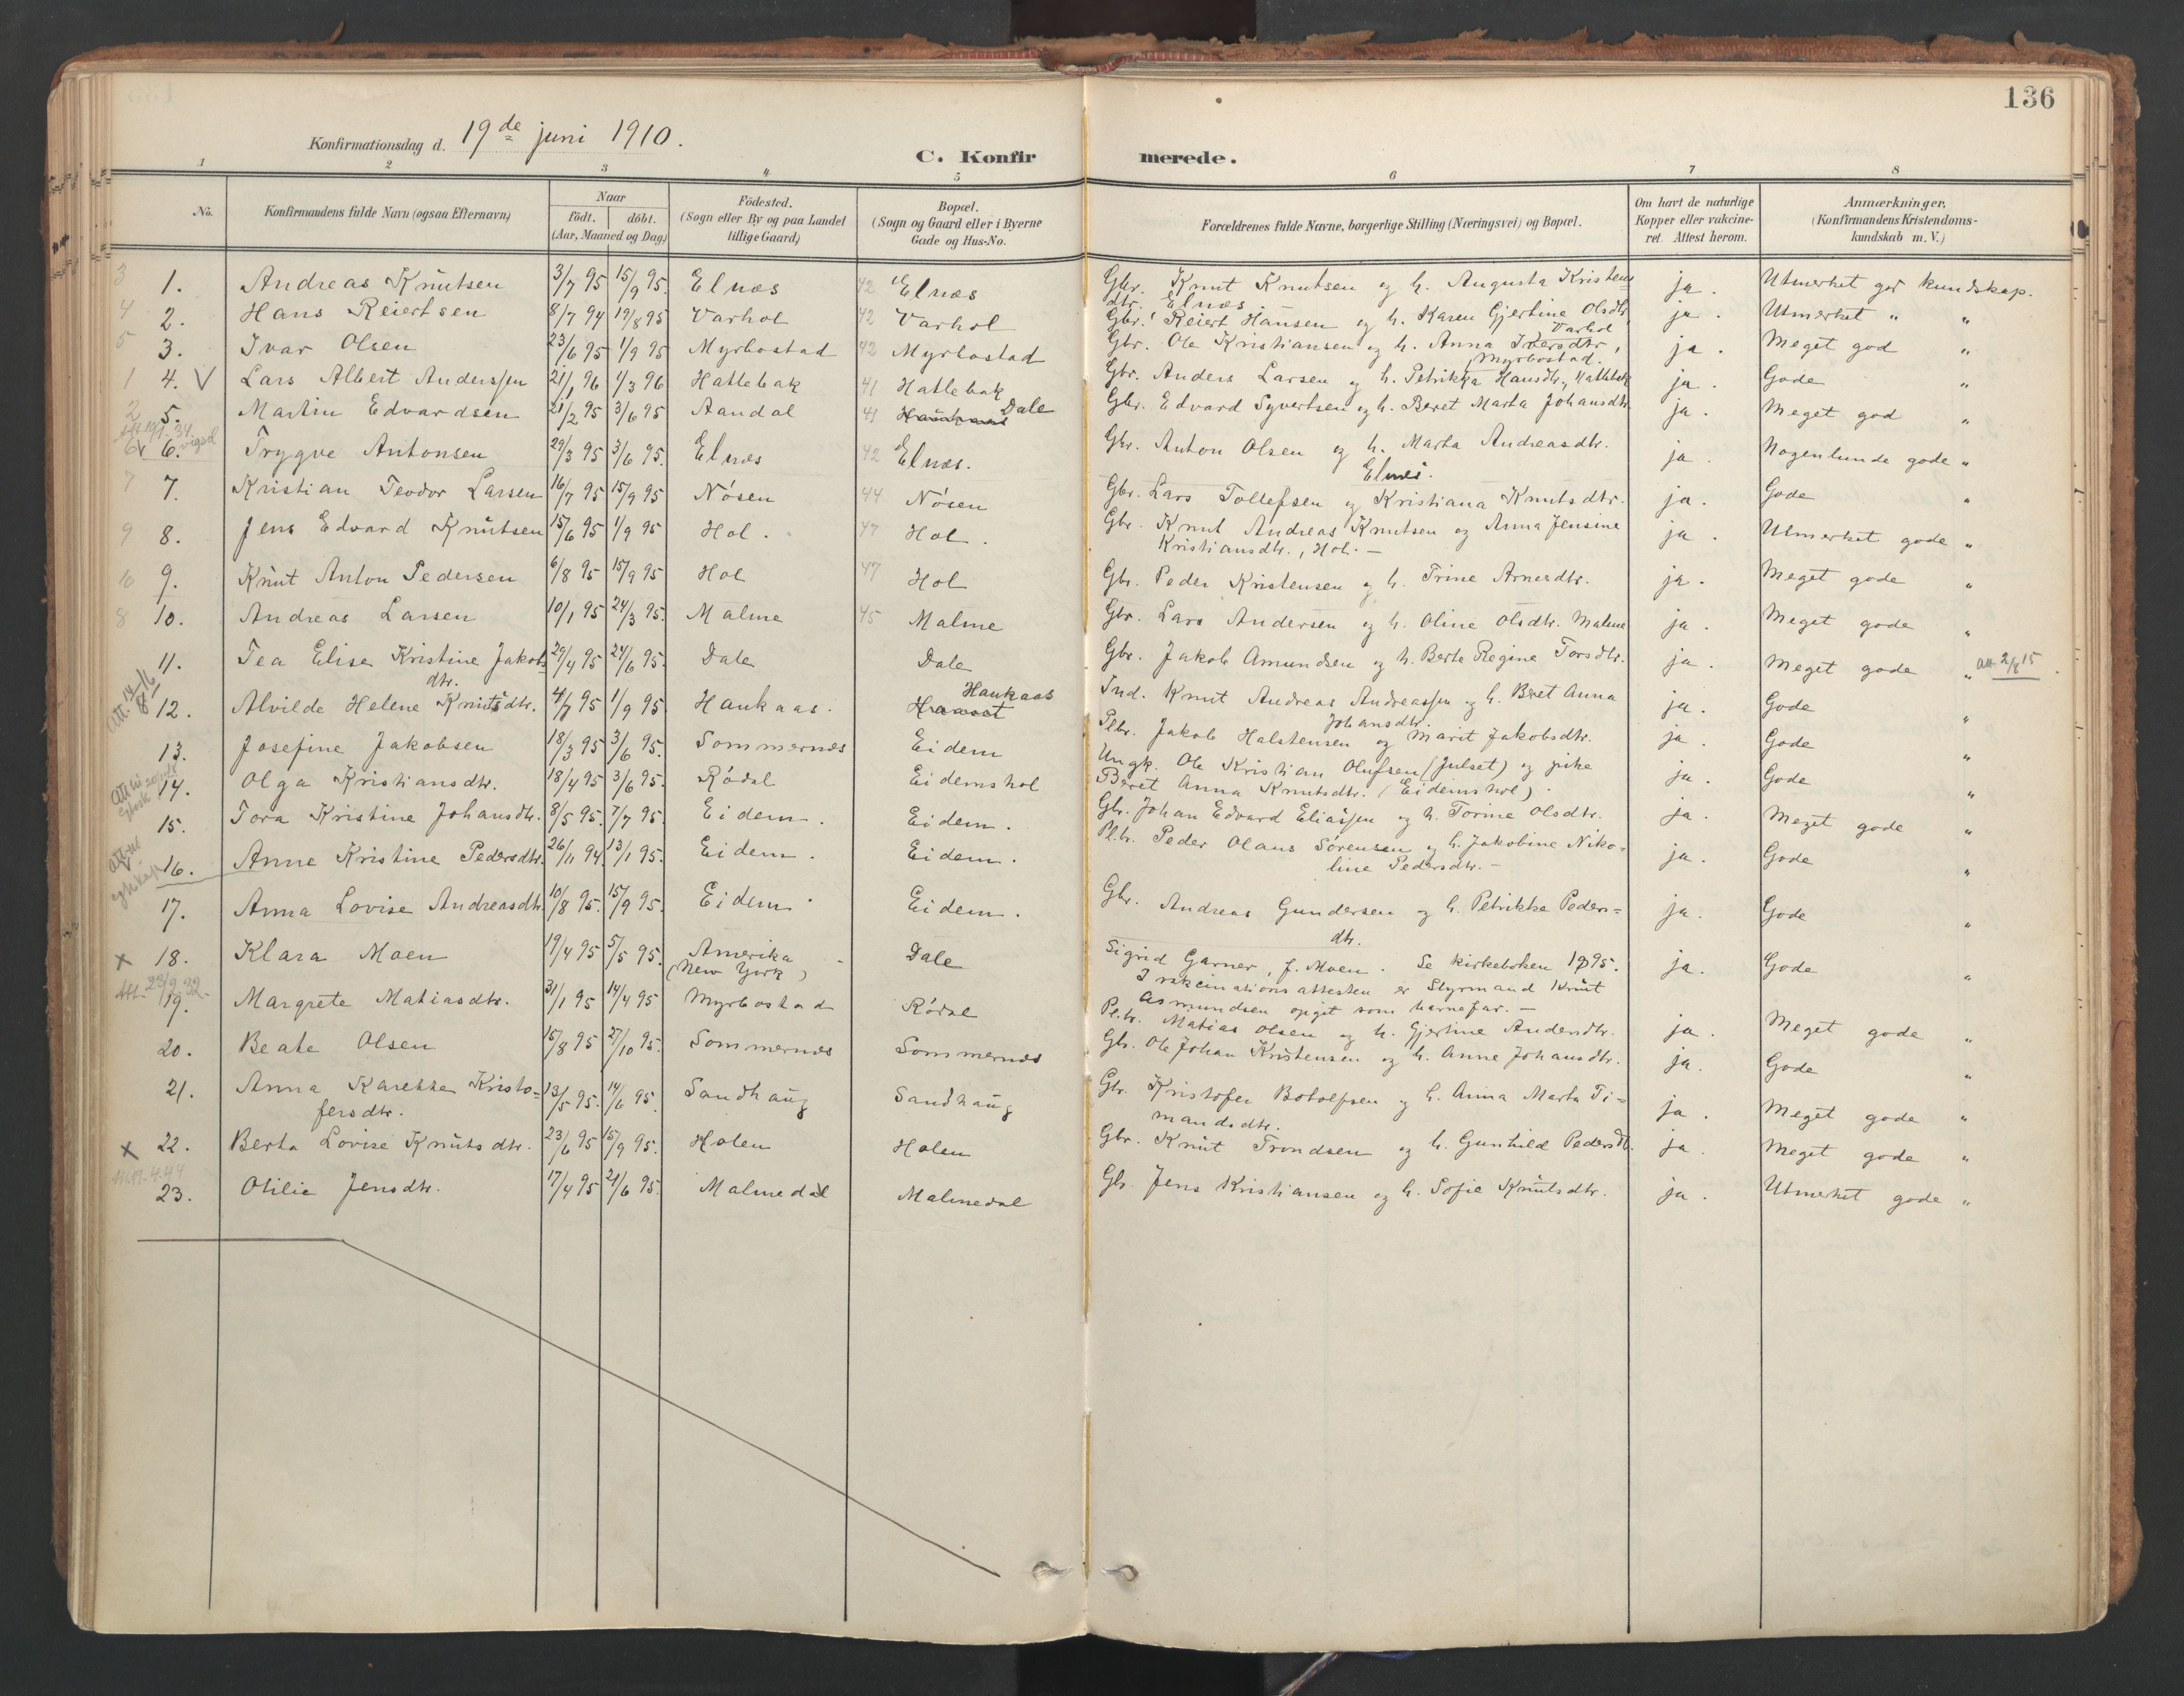 136
Konfirmationsdag d. 19de juni 1910.
C. Konfirmerede.
1 2 3 4 5 6 7 8
No.
Konfirmandens fulde Navn (ogsaa Efternavn)
Naar
födt. döbt.
(Aar, Maaned og Dag)
Födested.
(Sogn eller By og paa Landet
tillige Gaard)
Bopæl.
(Sogn og Gaard eller i Byerne
Gade og Hus-No.
Forældrenes fulde Navne, borgerlige Stilling (Næringsvei) og Bopæl.
Om havt de naturlige
Kopper eller vakcine-
ret. Attest herom.
Anmærkninger,
(Konfirmandens Kristendoms-
kundskab m. V.)
3 1. Andreas Knutsen 3/7 95 15/9 95. Elnæs 42 Elnæs Gbr. Knut Knutsen og h. Augusta Kristens ja. Utmerket god kundskap.
dtr. Elnæs.
4 2. Hans Reiertsen 8/7 94 19/8 95 Varhol 42 Varhol Gbr. Reiert Hansen og h. Karen Gjertine Olsdtr. ja. Utmerket " "
Varhol
5 3. Ivar Olsen 23/6 95 1/9 95 Myrbostad 42 Myrbostad Gbr. Ole Kristiansen og h. Anna Iversdtr, ja. Meget god "
Myrbostad.
1 4. V Lars Albert Anderssen 21/1 96 1/3 96 Hatlebak 41 Hatlebak Gbr. Anders Larsen og h. Petrikka Hansdtr., Hatlebak ja. Gode "
2 5. Martin Edvardsen 21/2 95 3/6 95 Aandal 41 Haukaas Dale Gbr. Edvard Syvertsen og h. Beret Marta Johansdtr ja. Meget god "
Att 19/1 34 vigsel
6 V 6. Trygve Antonsen 29/3 95 3/6 95. Elnæs 42 Elnæs. Gbr. Anton Olsen og h. Marta Andreasdtr. ja. Nogenlunde gode "
Elnæs.
7 7. Kristian Teodor Larsen 16/7 95 15/9 95 Nösen 44 Nösen Gbr. Lars Tollefsen og Kristiana Knutsdtr. ja. Gode "
9 8. Jens Edvard Knutsen 15/6 95 1/9 95 Hol. 47 Hol. Gbr. Knut Andreas Knutsen og Anna Jensine ja. Utmerket gode "
Kristiansdtr., Hol. —
10 9. Knut Anton Pedersen 6/8 95 15/9 95 Hol 47 Hol Gbr. Peder Kristensen og h. Trine Arnesdtr. ja. Meget gode "
8 10. Andreas Larsen 10/1 95 24/3 95. Malme 45 Malme Gbr. Lars Andersen og h. Oline Olsdtr. Malme ja. Meget gode "
11. Tea Elise Kristine Jakobs 29/4 95 24/6 95. Dale Dale Gbr. Jakob Amundsen og h. Berte Regine Torsdtr. ja. Meget gode " Att 2/8 15.
dtr.
Att. 14/8 16
12. Alvilde Helene Knutsdtr. 4/7 95 1/9 95 Haukaas. Haaset Haukaas Ind. Knut Andreas Andreassen og h. Beret Anna ja. Gode "
Johansdtr.
13. Josefine Jakobsen 18/3 95 3/6 95. Sommernes Eidem Plbr. Jakob Halstensen og Marit Jakobsdtr. ja. Gode "
14. Olga Kristiansdtr. 18/4 95 3/6 95. Rödal Eidemshol Ungk. Ole Kristian Olufsen (Julset) og pike ja. Gode "
Beret Anna Knutsdtr. (Eidemshol).
15. Tora Kristine Johansdtr. 8/5 95. 7/7 95. Eidem. Eidem. Gbr. Johan Edvard Eliassen og h. Torine Olsdtr. ja. Meget gode "
16. Anne Kristine Pedersdtr. 26/11 94. 13/1 95. Eidem. Eidem. Plbr. Peder Olaus Sörensen og h. Jakobine Niko= ja. Gode "
line Pedersdtr. —
17. Anna Lovise Andreasdtr. 10/8 95. 15/9 95. Eidem. Eidem. Gbr. Andreas Gundersen og h. Petrikke Peders= ja. Gode "
dtr.
x 18. Klara Moen 19/4 95 5/5 95. Amerika Dale Sigrid Garner, f. Moen. Se kirkeboken 1895. ja. Gode "
(New York) I vakcinationsattesten er Styrmand Knut
Asmundsen opgit som barnefar. —
Att. 23/9 32
19. Margrete Matiasdtr. 31/1 95 14/4 95 Myrbostad Rödal Pl.br. Matias Olsen og h. Gjertine Andersdtr. ja. Meget gode "
20. Beate Olsen 15/8 95 27/10 95. Sommernes Sommernes Gbr. Ole Johan Kristensen og h. Anne Johansdtr. ja. Gode "
21. Anna Karekke Kristo= 13/5 95. 14/6 95. Sandhaug Sandhaug Gbr. Kristofer Botolfsen og h. Anna Marta Ti= ja. Meget gode "
fersdtr. mandsdtr.
x 22. Berta Lovise Knutsdtr. 23/6 95 15/9 95. Holen Holen Gbr. Knut Trondsen og h. Gunhild Pedersdtr. ja. Meget gode "
Att 19-4-44
23. Otilie Jensdtr. 17/4 95 21/6 95. Malmedal Malmedal Gbr. Jens Kristiansen og h. Sofie Knutsdtr. ja. Utmerket gode "